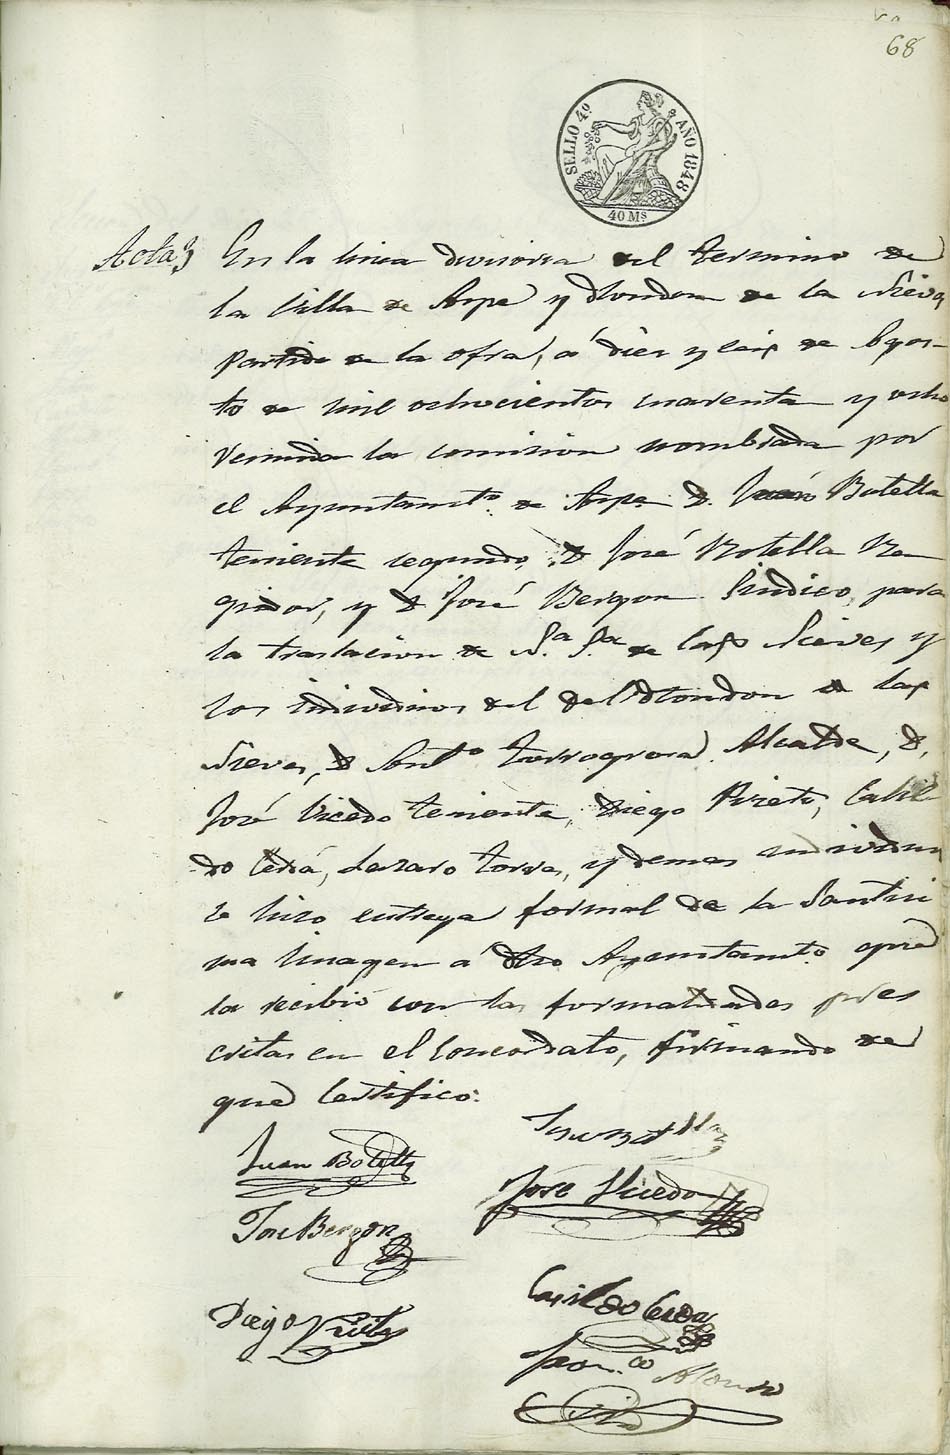 68
SELLO 4º AÑO 1848
40 Ms
Acta} En la linea divisoria del termino de
la Villa de Aspe y Hondon de las Nieves,
partido de la ofra, á diez y seis de Agos-
to de mil ochocientos cuarenta y ocho
reunida la comision nombrada por
el Ayuntamto. de Aspe D. Juan Botella
teniente segundo, D José Botella Re
gidor, y D José Bergon Sindico, para
la traslacion de N.a S.a de las Nieves y
los individuos del del Hondon de las
Nieves, D Anto. Torregrosa Alcalde, D.
José Vicedo teniente, Diego Prieto, Casil
do Cerdá, Lazaro Torres, y demas individuos
se hizo entrega formal de la Santisi
ma Imagen á dho Ayuntamto. que
la recibió con las formalidades pres
critas en el Concordato, firmando de
que Certifico:
Juan Botella
José Botella
José Vicedo
Jose Bergon
Casildo Cerda
Diego Prieto
Franco Alonso